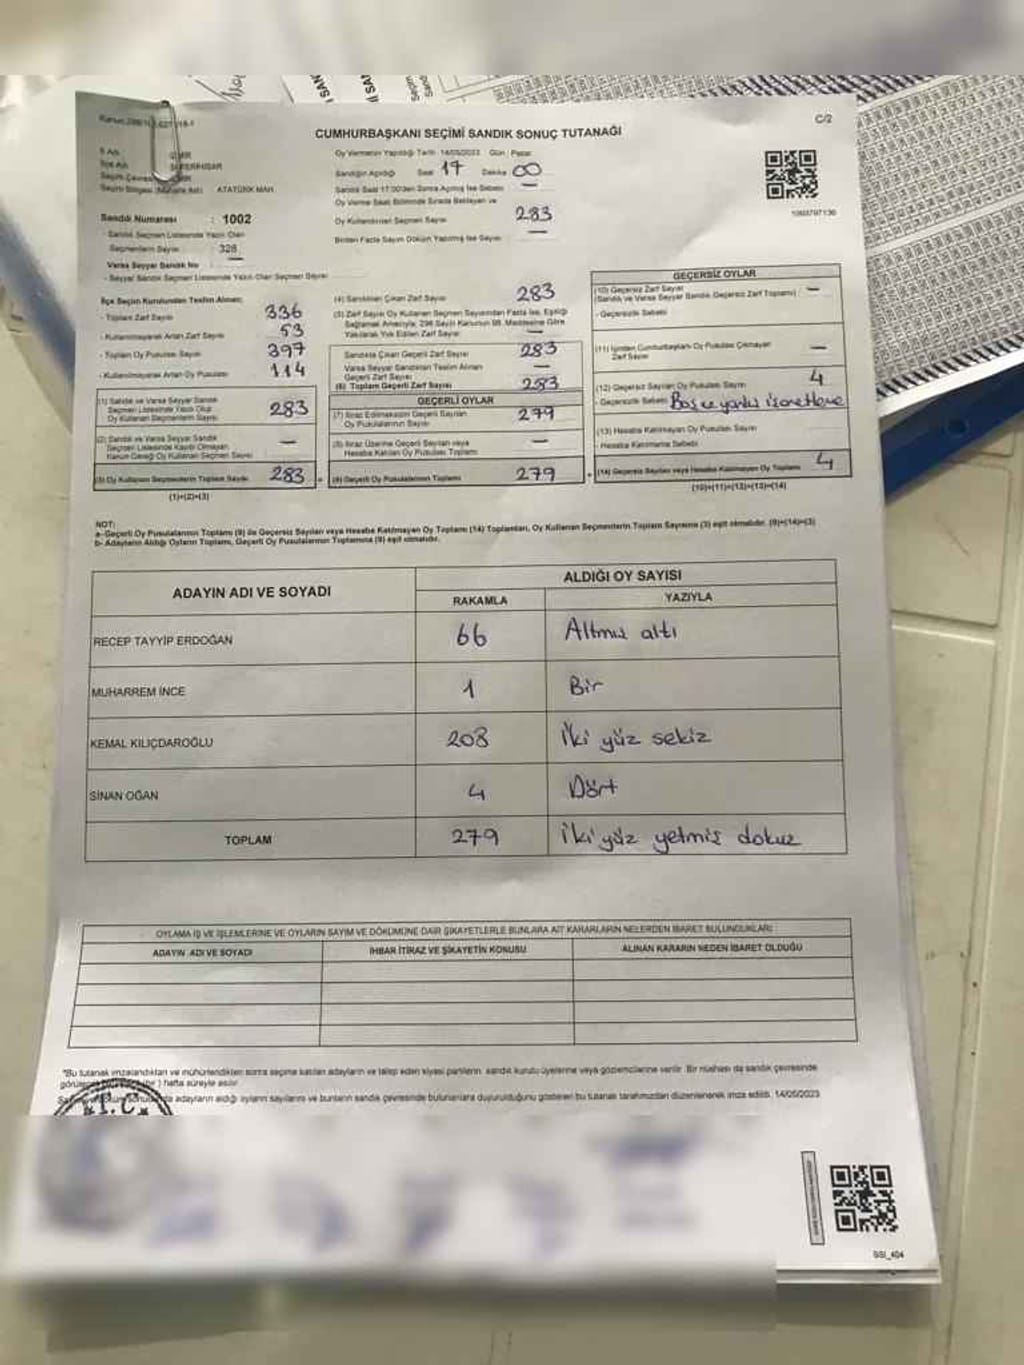 C/2
CUMHURBAŞKANI SEÇİMİ SANDIK SONUÇ TUTANAĞI
Oy Vermenin Yapıldığı Tarih 14/05/2023 Gün Pazar
Sandığın Açıldığı Saat 17 Dakika 00
ATATÜRK MAH.
Sandık Saat 17:00'den Sonra Açılmış İse Sebebi —
Oy Verme Saati Bitiminde Sırada Bekleyen ve
Oy Kullandırılan Seçmen Sayısı 283
Birden Fazla Sayım Döküm Yapılmış İse Sayısı —
1060797136
Sandık Numarası : 1002
- Sandık Seçmen Listesinde Yazılı Olan
Seçmenlerin Sayısı 328
Varsa Seyyar Sandık No —
- Seyyar Sandık Seçmen Listesinde Yazılı Olan Seçmen Sayısı
İlçe Seçim Kurulundan Teslim Alınan:
- Toplam Zarf Sayısı 336
- Kullanılmayarak Artan Zarf Sayısı 53
- Toplam Oy Pusulası Sayısı 397
- Kullanılmayarak Artan Oy Pusulası 114
(1) Sandık ve Varsa Seyyar Sandık
Seçmen Listesinde Yazılı Olup
Oy Kullanan Seçmenlerin Sayısı 283
(2) Sandık ve Varsa Seyyar Sandık
Seçmen Listesinde Kayıtlı Olmayan
Kanun Gereği Oy Kullanan Seçmen Sayısı —
(3) Oy Kullanan Seçmenlerin Toplam Sayısı 283
(1)+(2)=(3)
(4) Sandıktan Çıkan Zarf Sayısı 283
(5) Zarf Sayısı Oy Kullanan Seçmen Sayısından Fazla İse, Eşitliği
Sağlamak Amacıyla, 298 Sayılı Kanunun 98. Maddesine Göre
Yakılarak Yok Edilen Zarf Sayısı —
Sandıkta Çıkan Geçerli Zarf Sayısı 283
Varsa Seyyar Sandıktan Teslim Alınan
Geçerli Zarf Sayısı —
(6) Toplam Geçerli Zarf Sayısı 283
GEÇERLİ OYLAR
(7) İtiraz Edilmeksizin Geçerli Sayılan
Oy Pusulalarının Sayısı 279
(8) İtiraz Üzerine Geçerli Sayılan veya
Hesaba Katılan Oy Pusulası Toplamı —
(9) Geçerli Oy Pusulalarının Toplamı 279
GEÇERSİZ OYLAR
(10) Geçersiz Zarf Sayısı —
(Sandık ve Varsa Seyyar Sandık Geçersiz Zarf Toplamı)
- Geçersizlik Sebebi
(11) İçinden Cumhurbaşkanı Oy Pusulası Çıkmayan
Zarf Sayısı —
(12) Geçersiz Sayılan Oy Pusulası Sayısı 4
- Geçersizlik Sebebi Boş ve yanlış işaretleme
(13) Hesaba Katılmayan Oy Pusulası Sayısı
- Hesaba Katılmama Sebebi
(14) Geçersiz Sayılan veya Hesaba Katılmayan Oy Toplamı 4
(10)+(11)+(12)+(13)=(14)
NOT:
a- Geçerli Oy Pusulalarının Toplamı (9) ile Geçersiz Sayılan veya Hesaba Katılmayan Oy Toplamı (14) Toplamları, Oy Kullanan Seçmenlerin Toplam Sayısına (3) eşit olmalıdır. (9)+(14)=(3)
b- Adayların Aldığı Oyların Toplamı, Geçerli Oy Pusulalarının Toplamına (9) eşit olmalıdır.
ADAYIN ADI VE SOYADI
ALDIĞI OY SAYISI
RAKAMLA YAZIYLA
RECEP TAYYİP ERDOĞAN 66 Altmış altı
MUHARREM İNCE 1 Bir
KEMAL KILIÇDAROĞLU 208 İki yüz sekiz
SİNAN OĞAN 4 Dört
TOPLAM 279 İki yüz yetmiş dokuz
OYLAMA İŞ VE İŞLEMLERİNE VE OYLARIN SAYIM VE DÖKÜMÜNE DAİR ŞİKAYETLERLE BUNLARA AİT KARARLARIN NELERDEN İBARET BULUNDUKLARI
ADAYIN ADI VE SOYADI İHBAR İTİRAZ VE ŞİKAYETİN KONUSU ALINAN KARARIN NEDEN İBARET OLDUĞU
*Bu tutanak imzalandıktan ve mühürlendikten sonra seçime katılan adayların ve talep eden siyasi partilerin sandık kurulu üyelerine veya gözlemcilerine verilir. Bir nüshası da sandık çevresinde
hafta süreyle asılır.
adayların aldığı oyların sayılarını ve bunların sandık çevresinde bulunanlara duyurulduğunu gösteren bu tutanak tarafımızdan düzenlenerek imza edildi. 14/05/2023
T.C.
SSI_404